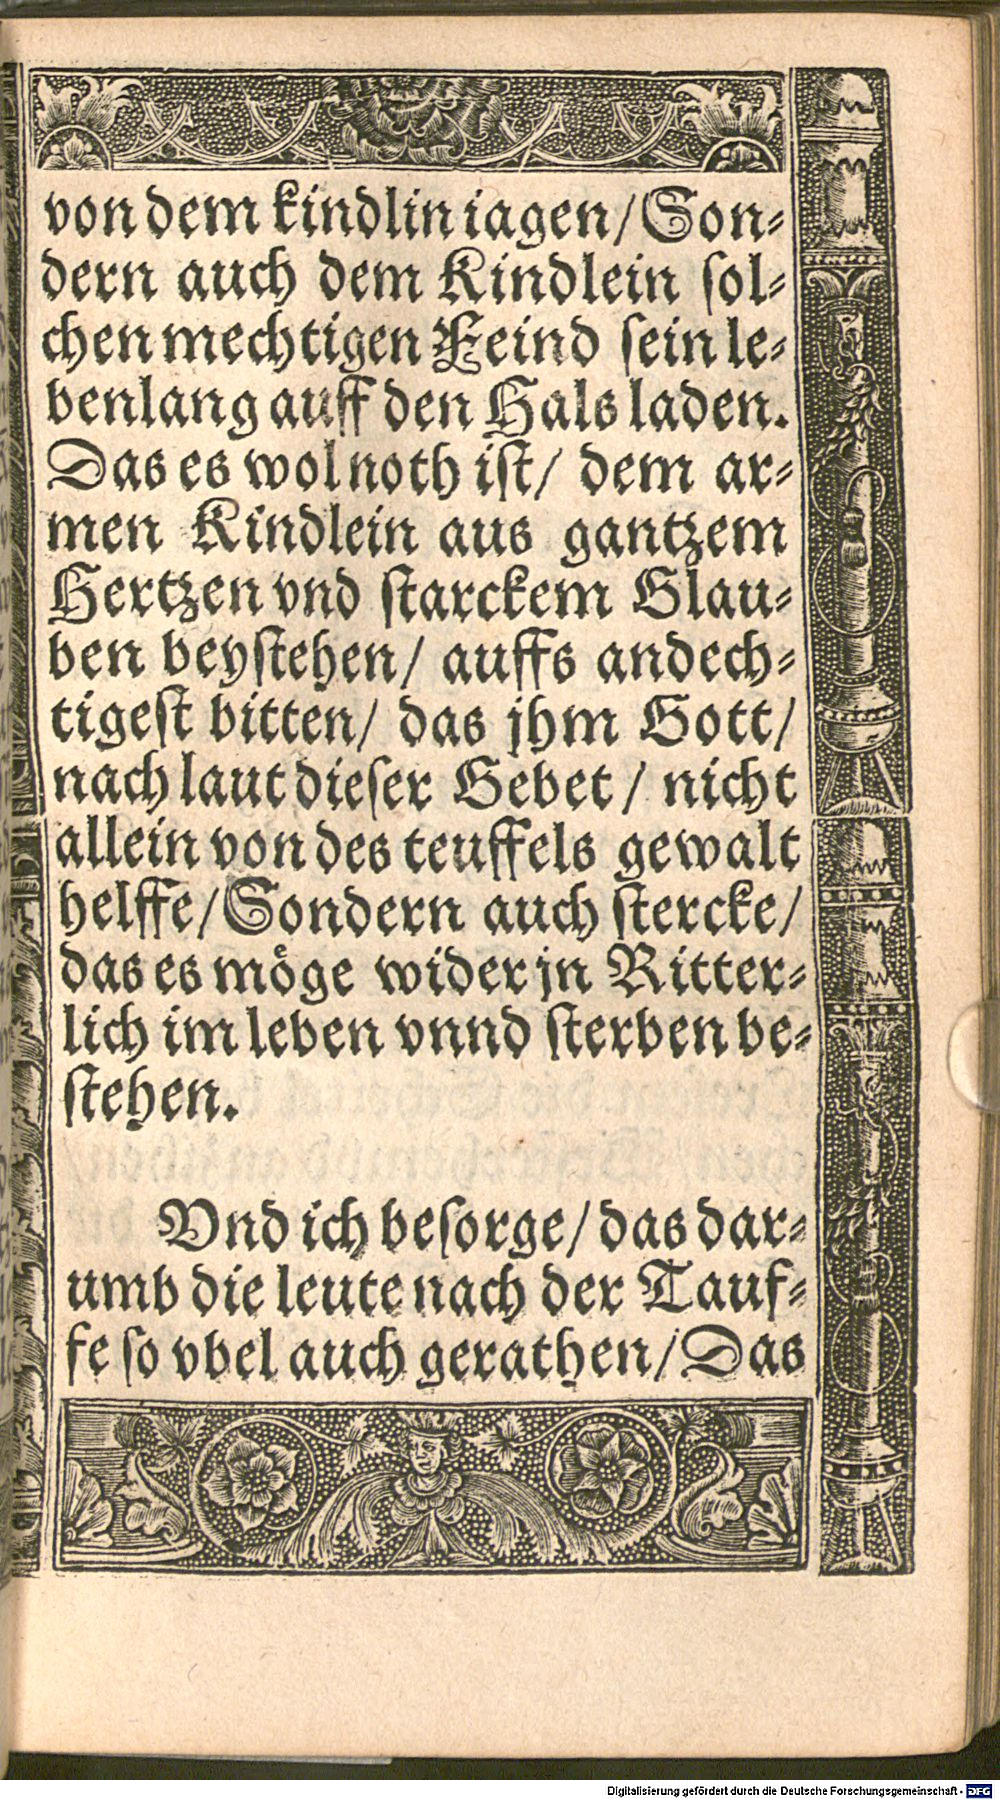 von dem kindlin iagen/Son-
dern auch dem Kindlein sol-
chen mechtigen Feind sein le-
benlang auff den Hals laden.
Das es wol noth ist/ dem ar-
men Kindlein aus gantzem
Hertzen vnd starckem Glau-
ben beystehen/ auffs andech-
tigest bitten/ das jhm Gott/
nach laut dieser Gebet/ nicht
allein von des teuffels gewalt
helffe/Sondern auch stercke/
das es möge wider jn Ritter-
lich im leben vnnd sterben be-
stehen.
Vnd ich besorge/das dar-
umb die leute nach der Tauf-
fe so vbel auch gerathen/Das
Digitalisierung gefördert durch die Deutsche Forschungsgemeinschaft - DFG